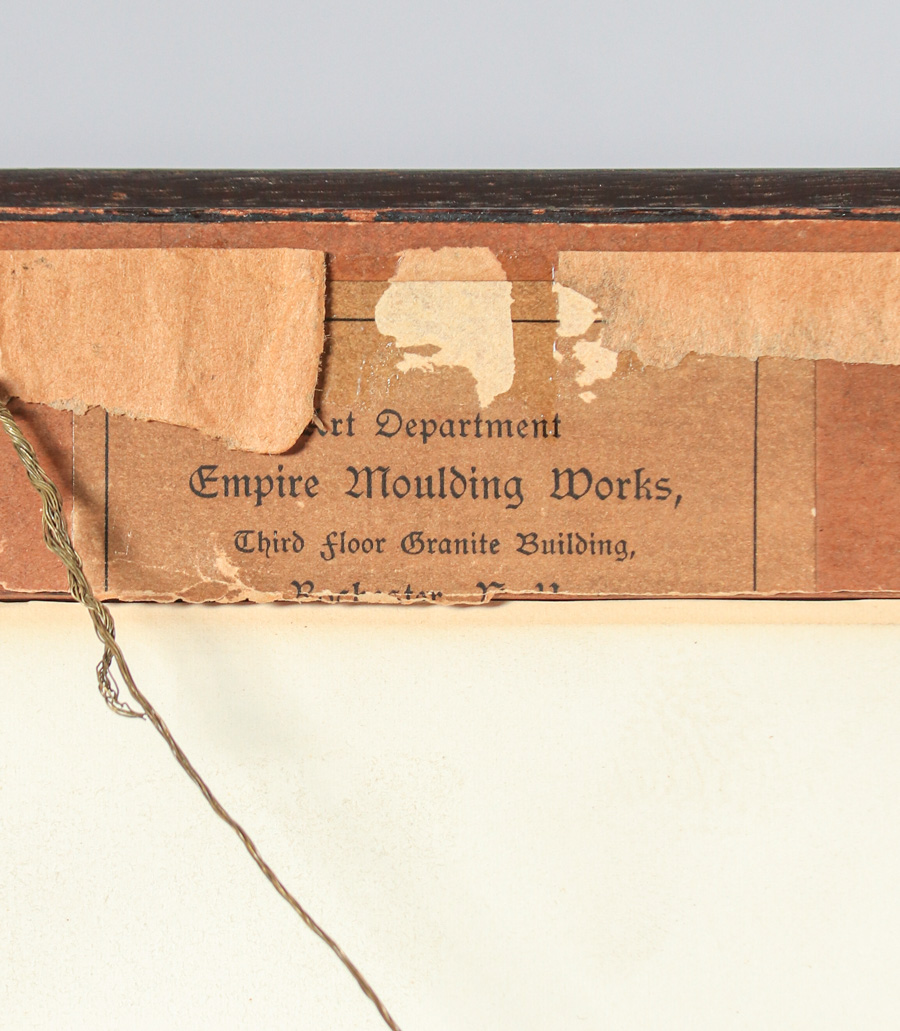 Art Department
Empire Moulding Works,
Third Floor Granite Building,
Rochester, N. Y.